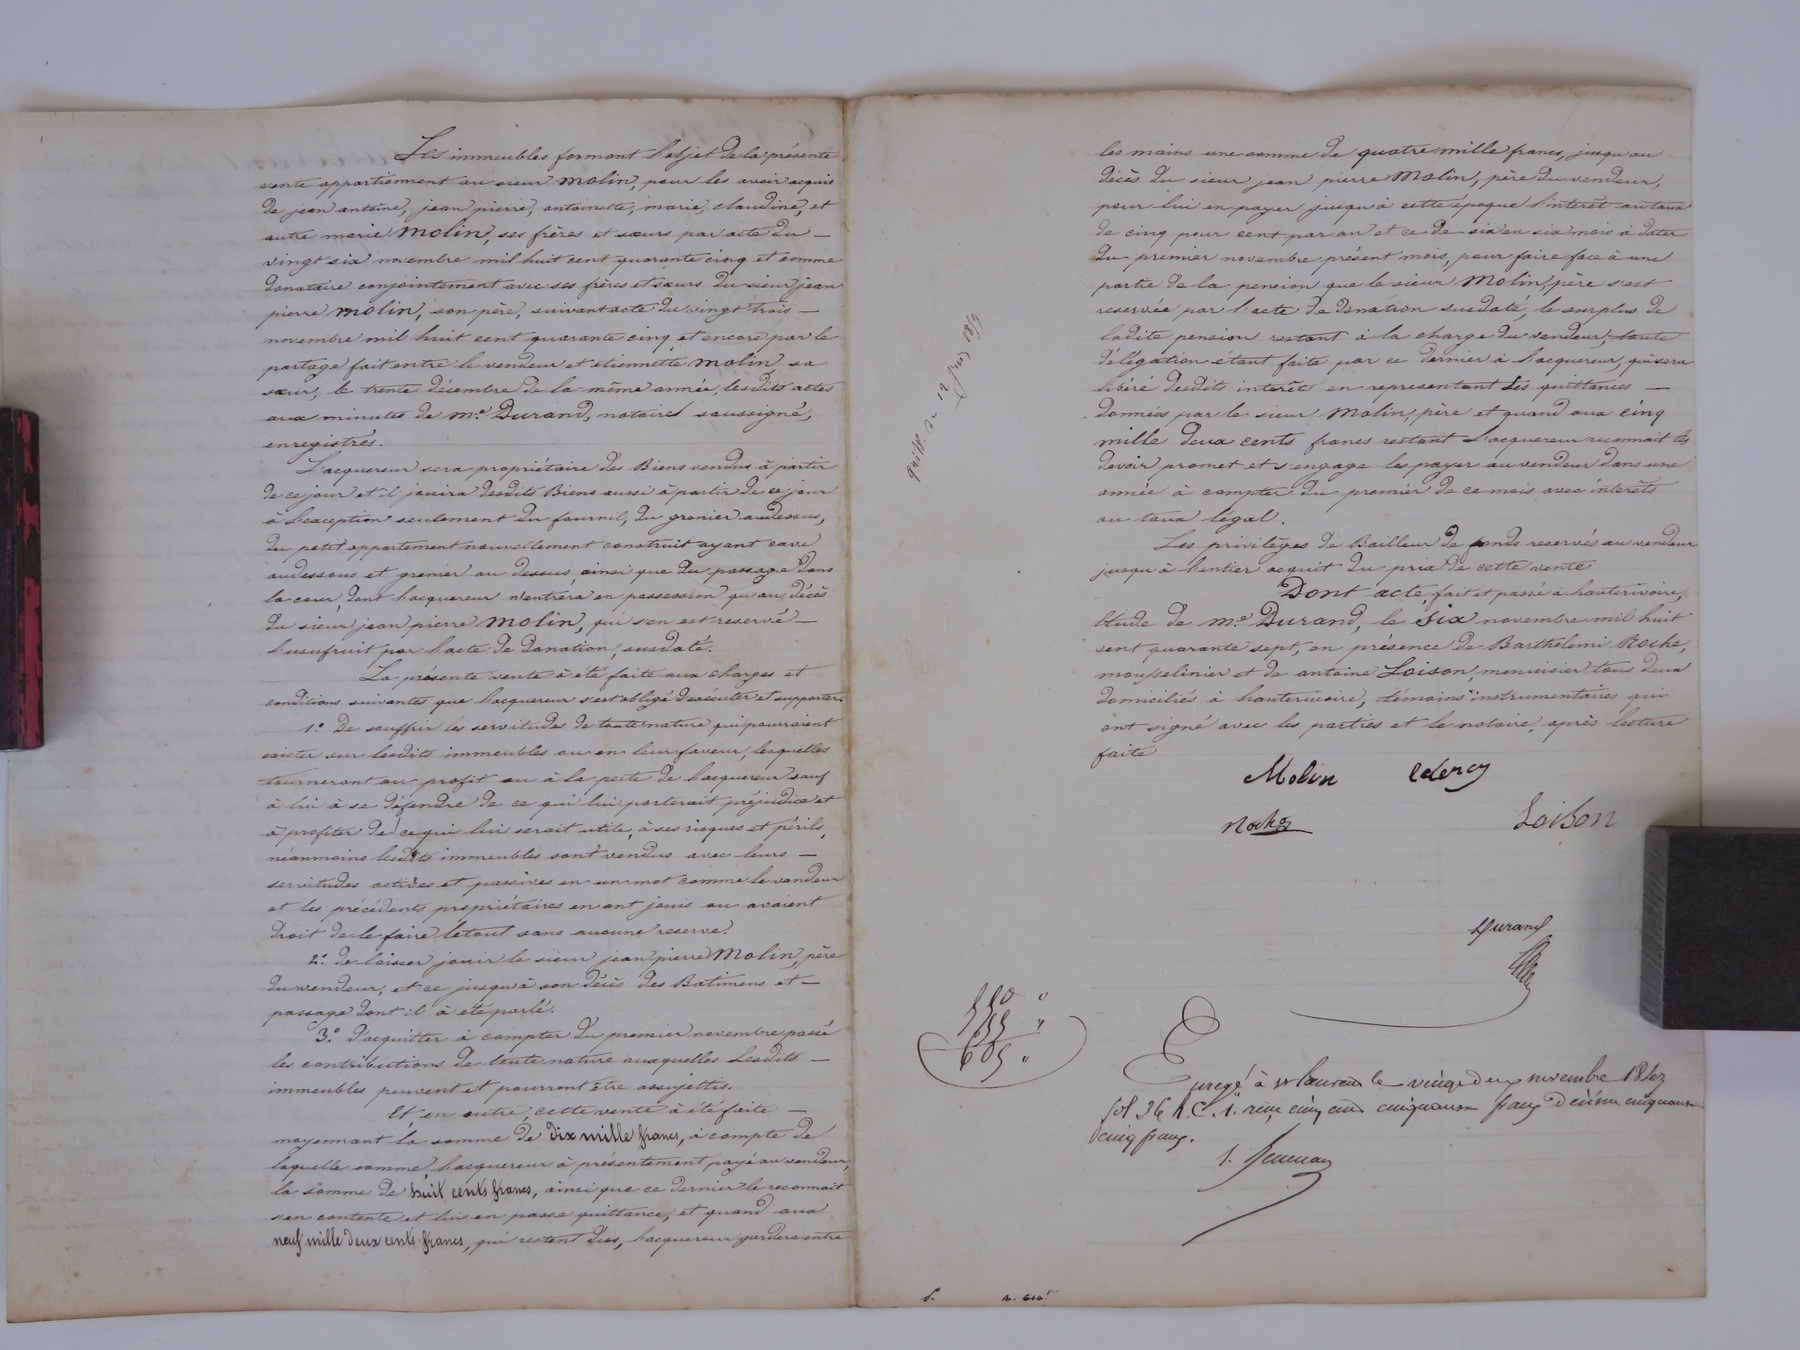 Les immeubles formant l'objet de la présente
vente appartiennent au sieur Molin, pour les avoir acquis
de jean antoine, jean pierre, antoinette, marie, claudine, et
autre marie Molin, ses frères et sœurs par acte du —
vingt six novembre mil huit cent quarante cinq et comme
donataire conjointement avec ses frères et sœurs du sieur jean
pierre Molin, son père, suivant acte du vingt trois —
novembre mil huit cent quarante cinq et encore par le
partage fait entre le vendeur et etiennette Molin, sa
sœur, le trente décembre de la même année, lesdits actes
aux minutes de Me. Durand, notaire soussigné,
enregistrés.
L'acquereur sera propriétaire des Biens vendus à partir
de ce jour et il jouira desdits Biens aussi à partir de ce jour
à l'exception seulement du fournil, du grenier audessus,
du petit appartement nouvellement construit ayant cave
audessous et grenier au dessus, ainsi que du passage dans
la cour, dont l'acquereur n'entrera en possession qu'au décès
du sieur jean pierre Molin, qui s'en est reservé —
l'usufruit par l'acte de donation, susdaté.
La présente vente à été faite aux charges et
conditions suivantes que l'acquereur s'est obligé d'exécuter et supporter.
1º. De souffrir les servitudes de toute nature qui pourraient
exister sur lesdits immeubles ou en leur faveur, lesquelles
tourneront au profit ou à la perte de l'acquereur sauf
à lui à se défendre de ce qui lui porterait préjudice et
à profiter de ce qui lui serait utile, à ses risques et périls,
néanmoins lesdits immeubles sont vendus avec leurs —
servitudes actives et passives en un mot comme le vendeur
et les précédents propriétaires en ont joui ou avaient
droit de le faire, letout sans aucune reserve.
2º. de laisser jouir le sieur jean pierre Molin, père
du vendeur, et ce jusqu'à son décès des Batimens et —
passage dont il à été parlé.
3º. d'acquitter à compter du premier novembre passé
les contributions de toute nature auxquelles lesdits —
immeubles peuvent et pourront être assujettis.
Et en outre, cette vente à été faite —
moyennant la somme de dix mille francs, à compte de
laquelle somme, l'acquereur à présentement payé au vendeur,
la somme de huit cents francs, ainsi que ce dernier le reconnait
s'en contente et lui en passe quittance, et quand aux
neuf mille deux cents francs, qui restent dus, l'acquereur gardera entre
les mains une somme de quatre mille francs, jusqu'au
décès du sieur jean pierre Molin, père du vendeur,
pour lui en payer jusqu'à cette époque l'interêt au taux
de cinq pour cent par an et ce de six en six mois à dater
du premier novembre présent mois, pour faire face à une
partie de la pension que le sieur Molin, père s'est
reservée par l'acte de donation susdaté, le surplus de
ladite pension restant à la charge du vendeur, toute
délégation étant faite par ce dernier à l'acquereur, qui sera
libéré desdits interêts en representant les quittances —
données par le sieur Molin, père et quand aux cinq
mille deux cents francs restant l'acquereur reconnait les
devoir promet et s'engage les payer au vendeur dans une
année à compter du premier de ce mois avec interêts
au taux légal.
Les privilèges de Bailleur de fonds reservés au vendeur
jusqu'à l'entier acquit du prix de cette vente
Dont acte, fait et passé à hauterivoire,
Etude de Me. Durand, le Six novembre mil huit
cent quarante sept, en présence de Barthélemi Roche,
mousselinier et de antoine Loison, menuisier tous deux
domiciliés à hauterivoire, témoins instrumentaires qui
ont signé avec les parties et le notaire, après lecture
faite
Molin
Clercy
Roche
Loison
Durand
550 "
55 "
605 "
Enregé à St Laurent le vingt deux novembre 1847
fol 36 R. C. 1. reçu cinq cent cinquante francs décime cinquante
cinq francs.